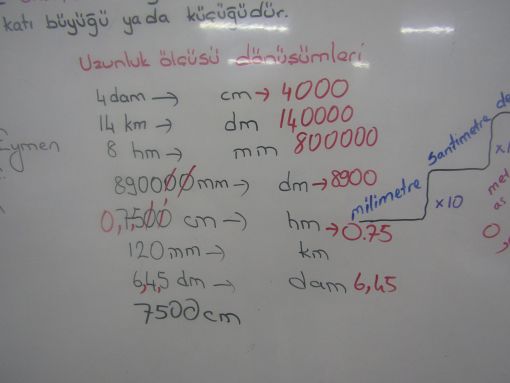 katı büyüğü yada küçüğüdür.
Uzunluk ölçüsü dönüşümleri
4 dam → cm → 4000
14 km → dm 140000
8 hm → mm 800000
Eymen
890000 mm → dm → 8900
0,7500 cm → hm → 0.75
120 mm → km
6,4,5 dm → dam 6,45
7500 cm
milimetre
x10
santimetre